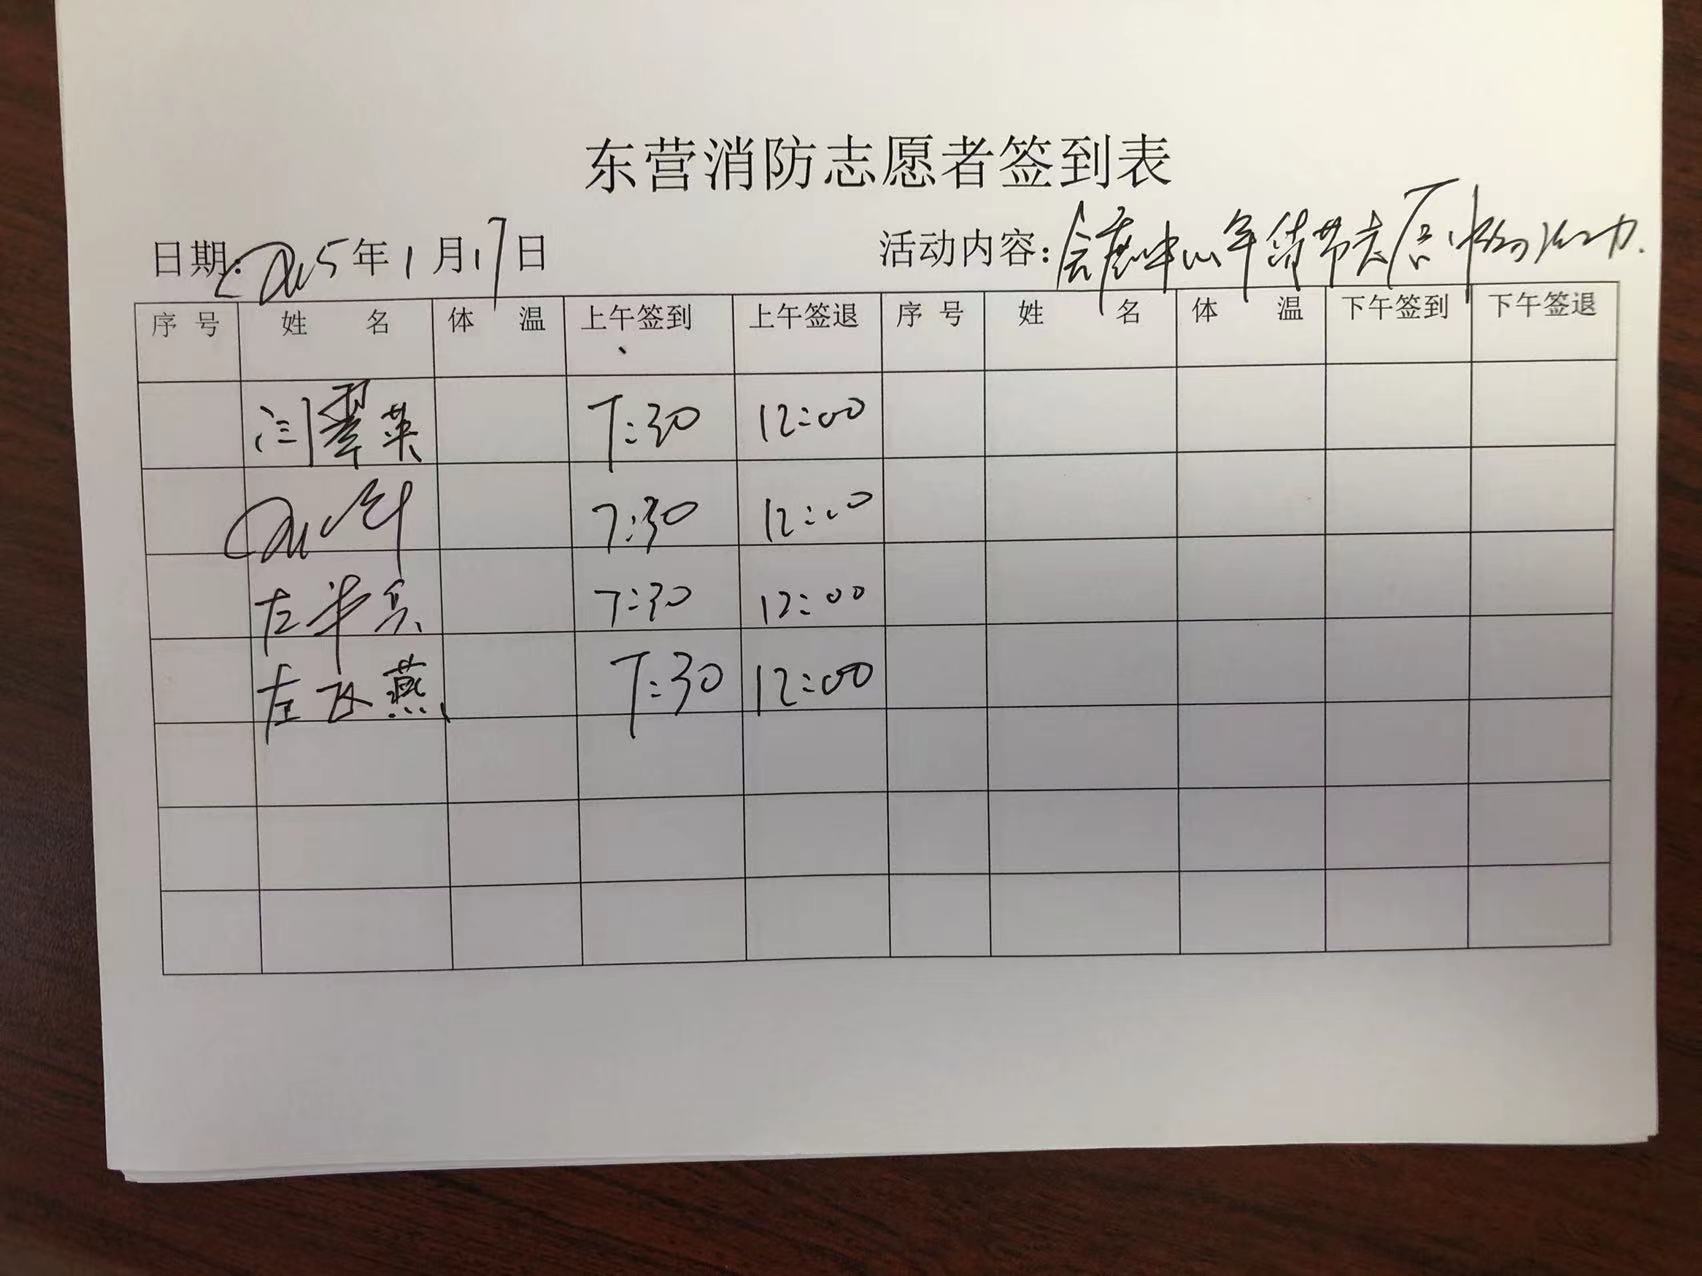 东营消防志愿者签到表
日期: 2025年1月17日 活动内容: 会展中心年货节志愿
序号 姓名 体温 上午签到 上午签退 序号 姓名 体温 下午签到 下午签退
闫翠英 7:30 12:00
7:30 12:00
左半兵 7:30 12:00
左飞燕 7:30 12:00